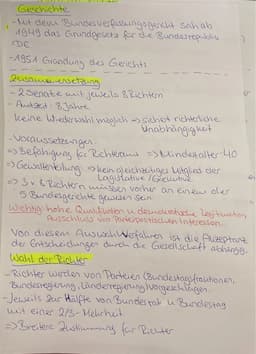 Geschichte
- Mit dem Bundesverfassungsgericht sah ab
1949 das Grundgesetz für die Bundesrepublik
DE
- 1951 Gründung des Gerichts
Zusammensetzung
- 2 Senate mit jeweils 8 Richtern
- Amtszeit: 8 Jahre
keine Wiederwahl möglich → sichert richterliche
Unabhängigkeit
- Voraussetzungen:
=> Befähigung für Richteramt => Mindestalter 40
=> Gewaltenteilung => kein gleichzeitiges Mitglied der
Legislative / Exekutive
=> 3 v. 8 Richtern müssen vorher an einem der
5 Bundesgerichte gewesen sein
Wichtig: hohe Qualifikation u. demokratische Legitimation
Ausschluss von parteipolitischen Interessen.
Von diesem Auswahlverfahren ist die Akzeptanz
der Entscheidungen durch die Gesellschaft abhängig.
Wahl der Richter
- Richter werden von Parteien (Bundestagsfraktionen,
Bundesregierung, Länderregierung) vorgeschlagen
- Jeweils zur Hälfte von Bundesrat u. Bundestag
mit einer 2/3-Mehrheit
=> Breitere Zustimmung für Richter